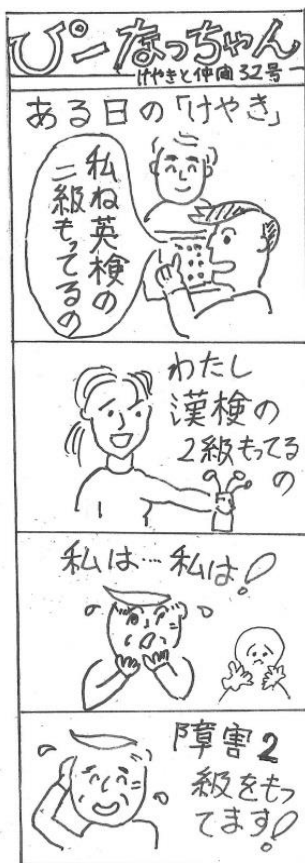 ぴーなっちゃん
けやきと仲間32号
ある日の「けやき」
私ね英検の
二級もってるの
わたし
漢検の
2級もってる
の
私は…私は!
障害2
級をもっ
てます!